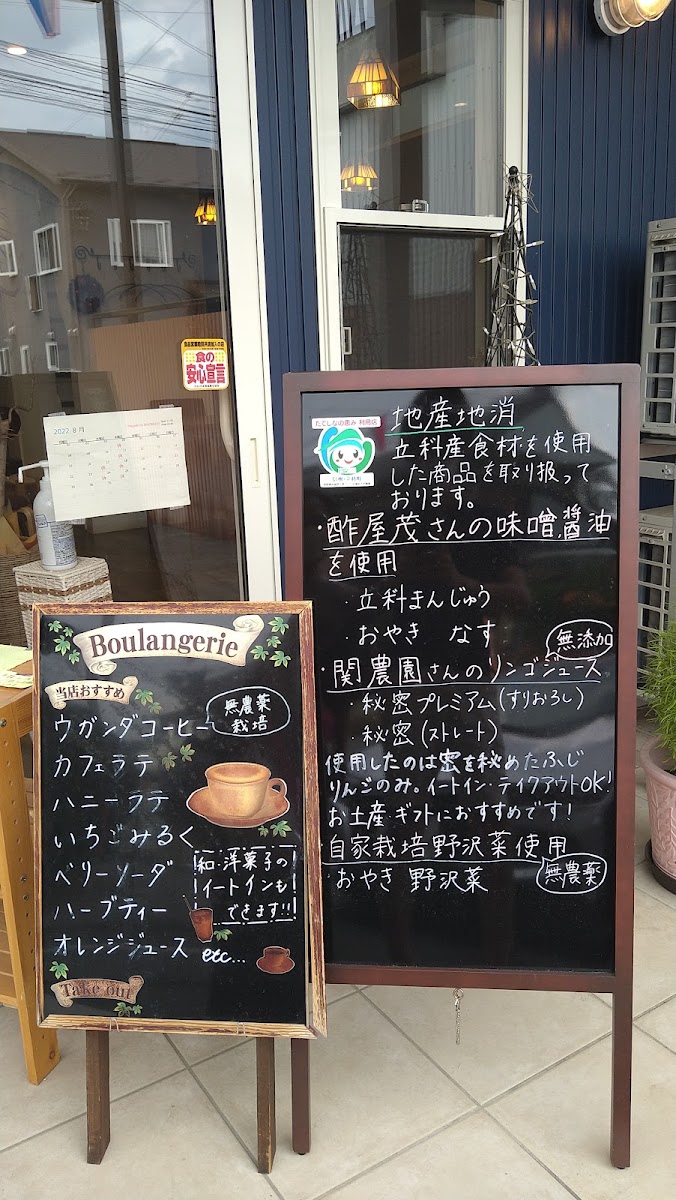 食の
安心宣言
2022 8月
Boulangerie
当店おすすめ
ウガンダコーヒー
無農薬
栽培
カフェラテ
ハニーラテ
いちごみるく
ベリーソーダ
ハーブティー
オレンジジュース etc...
和・洋菓子の
イートインも
できます!!
Take out
たてしなの恵み 利用店
地産地消
立科産食材を使用
した商品を取り扱って
おります。
・酢屋茂さんの味噌、醤油
を使用
・立科まんじゅう
・おやき なす
無添加
・関農園さんのリンゴジュース
・秘密プレミアム(すりおろし)
・秘密(ストレート)
使用したのは蜜を秘めたふじ
りんごのみ。イートイン・テイクアウトOK!
お土産・ギフトにおすすめです!
・自家栽培野沢菜使用
・おやき 野沢菜
無農薬